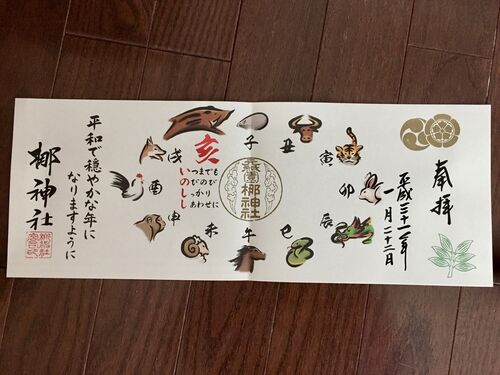 奉拝
平成三十一年
一月二十二日
子
丑
寅
卯
辰
巳
午
未
申
酉
戌
亥
いつまでも
のびのび
しっかり
しあわせに
元祇園梛神社
平和で穏やかな年に
なりますように
梛神社